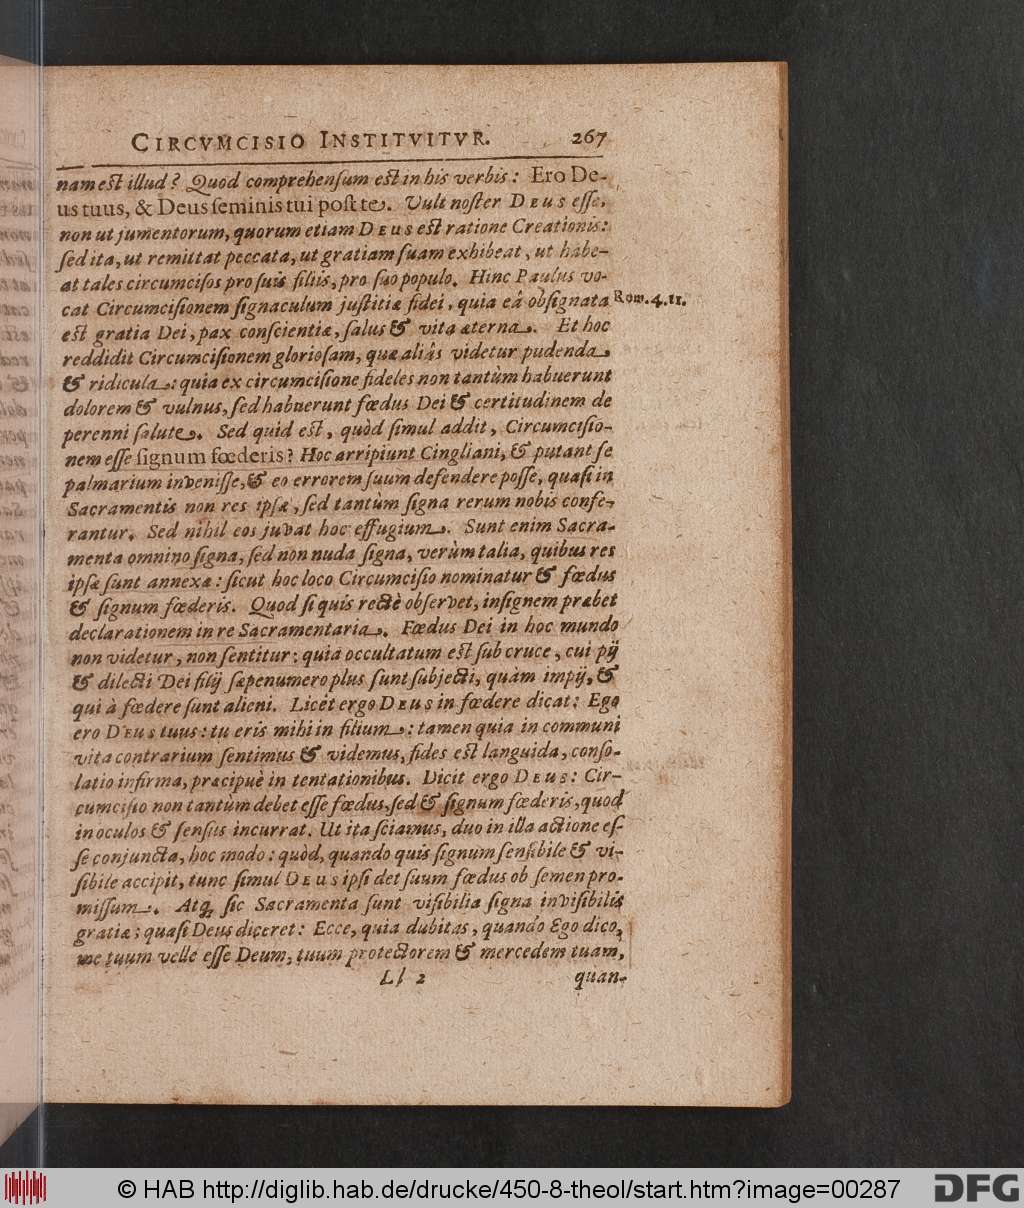 CIRCVMCISIO INSTITVITVR. 267
nam est illud? Quod comprehensum est in his verbis: Ero De-
us tuus, & Deus seminis tui post te. Vult noster DEUS esse,
non ut jumentorum, quorum etiam DEUS est ratione Creationis:
sed ita, ut remittat peccata, ut gratiam suam exhibeat, ut habe-
at tales circumcisos pro suis filiis, pro suo populo. Hinc Paulus vo-
cat Circumcisionem signaculum justitiæ fidei, quia eâ obsignata Rom. 4. 11.
est gratia Dei, pax conscientiæ, salus & vita æterna. Et hoc
reddidit Circumcisionem gloriosam, quæ aliâs videtur pudenda
& ridicula: quia ex circumcisione fideles non tantùm habuerunt
dolorem & vulnus, sed habuerunt fœdus Dei & certitudinem de
perenni salute. Sed quid est, quòd simul addit, Circumcisio-
nem esse signum fœderis? Hoc arripiunt Cingliani, & putant se
palmarium invenisse, & eo errorem suum defendere posse, quasi in
Sacramentis non res ipsæ, sed tantùm signa rerum nobis confe-
rantur. Sed nihil eos juvat hoc effugium. Sunt enim Sacra-
menta omnino signa, sed non nuda signa, verùm talia, quibus res
ipsæ sunt annexæ: sicut hoc loco Circumcisio nominatur & fœdus
& signum fœderis. Quod si quis rectè observet, insignem præbet
declarationem in re Sacramentaria. Fœdus Dei in hoc mundo
non videtur, non sentitur: quia occultatum est sub cruce, cui pij
& dilecti Dei filij sæpenumero plus sunt subjecti, quàm impij, &
qui à fœdere sunt alieni. Licèt ergo DEUS in fœdere dicat: Ego
ero DEUS tuus: tu eris mihi in filium: tamen quia in communi
vita contrarium sentimus & videmus, fides est languida, conso-
latio infirma, præcipuè in tentationibus. Dicit ergo DEUS: Cir-
cumcisio non tantùm debet esse fœdus, sed & signum fœderis, quod
in oculos & sensus incurrat. Ut ita sciamus, duo in illa actione es-
se conjuncta, hoc modo: quòd, quando quis signum sensibile & vi-
sibile accipit, tunc simul DEUS ipsi det suum fœdus ob semen pro-
missum. Atq; sic Sacramenta sunt visibilia signa invisibilis
gratiæ; quasi Deus diceret: Ecce, quia dubitas, quando Ego dico,
me tuum velle esse Deum, tuum protectorem & mercedem tuam,
Ll 2 quan-
© HAB http://diglib.hab.de/drucke/450-8-theol/start.htm?image=00287 DFG